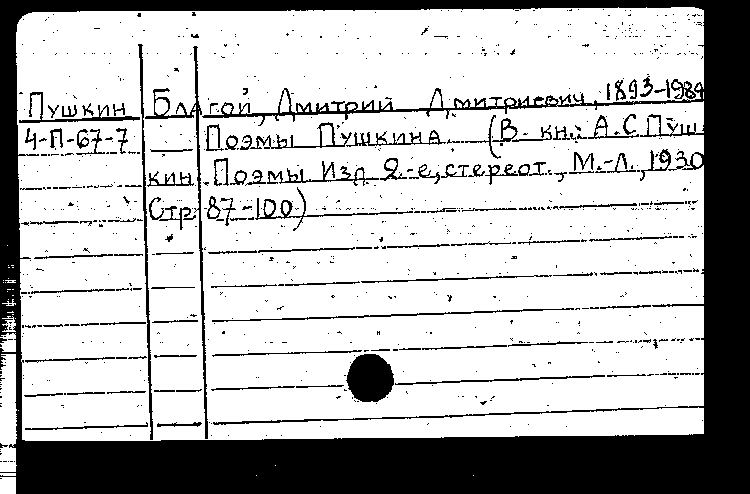 Пушкин Благой, Дмитрий Дмитриевич, 1893-1984
4-П-67-7 Поэмы Пушкина. (В кн.: А.С. Пуш-
кин. Поэмы Изд 2-е, стереот., М.-Л., 1930
Стр 87-100)